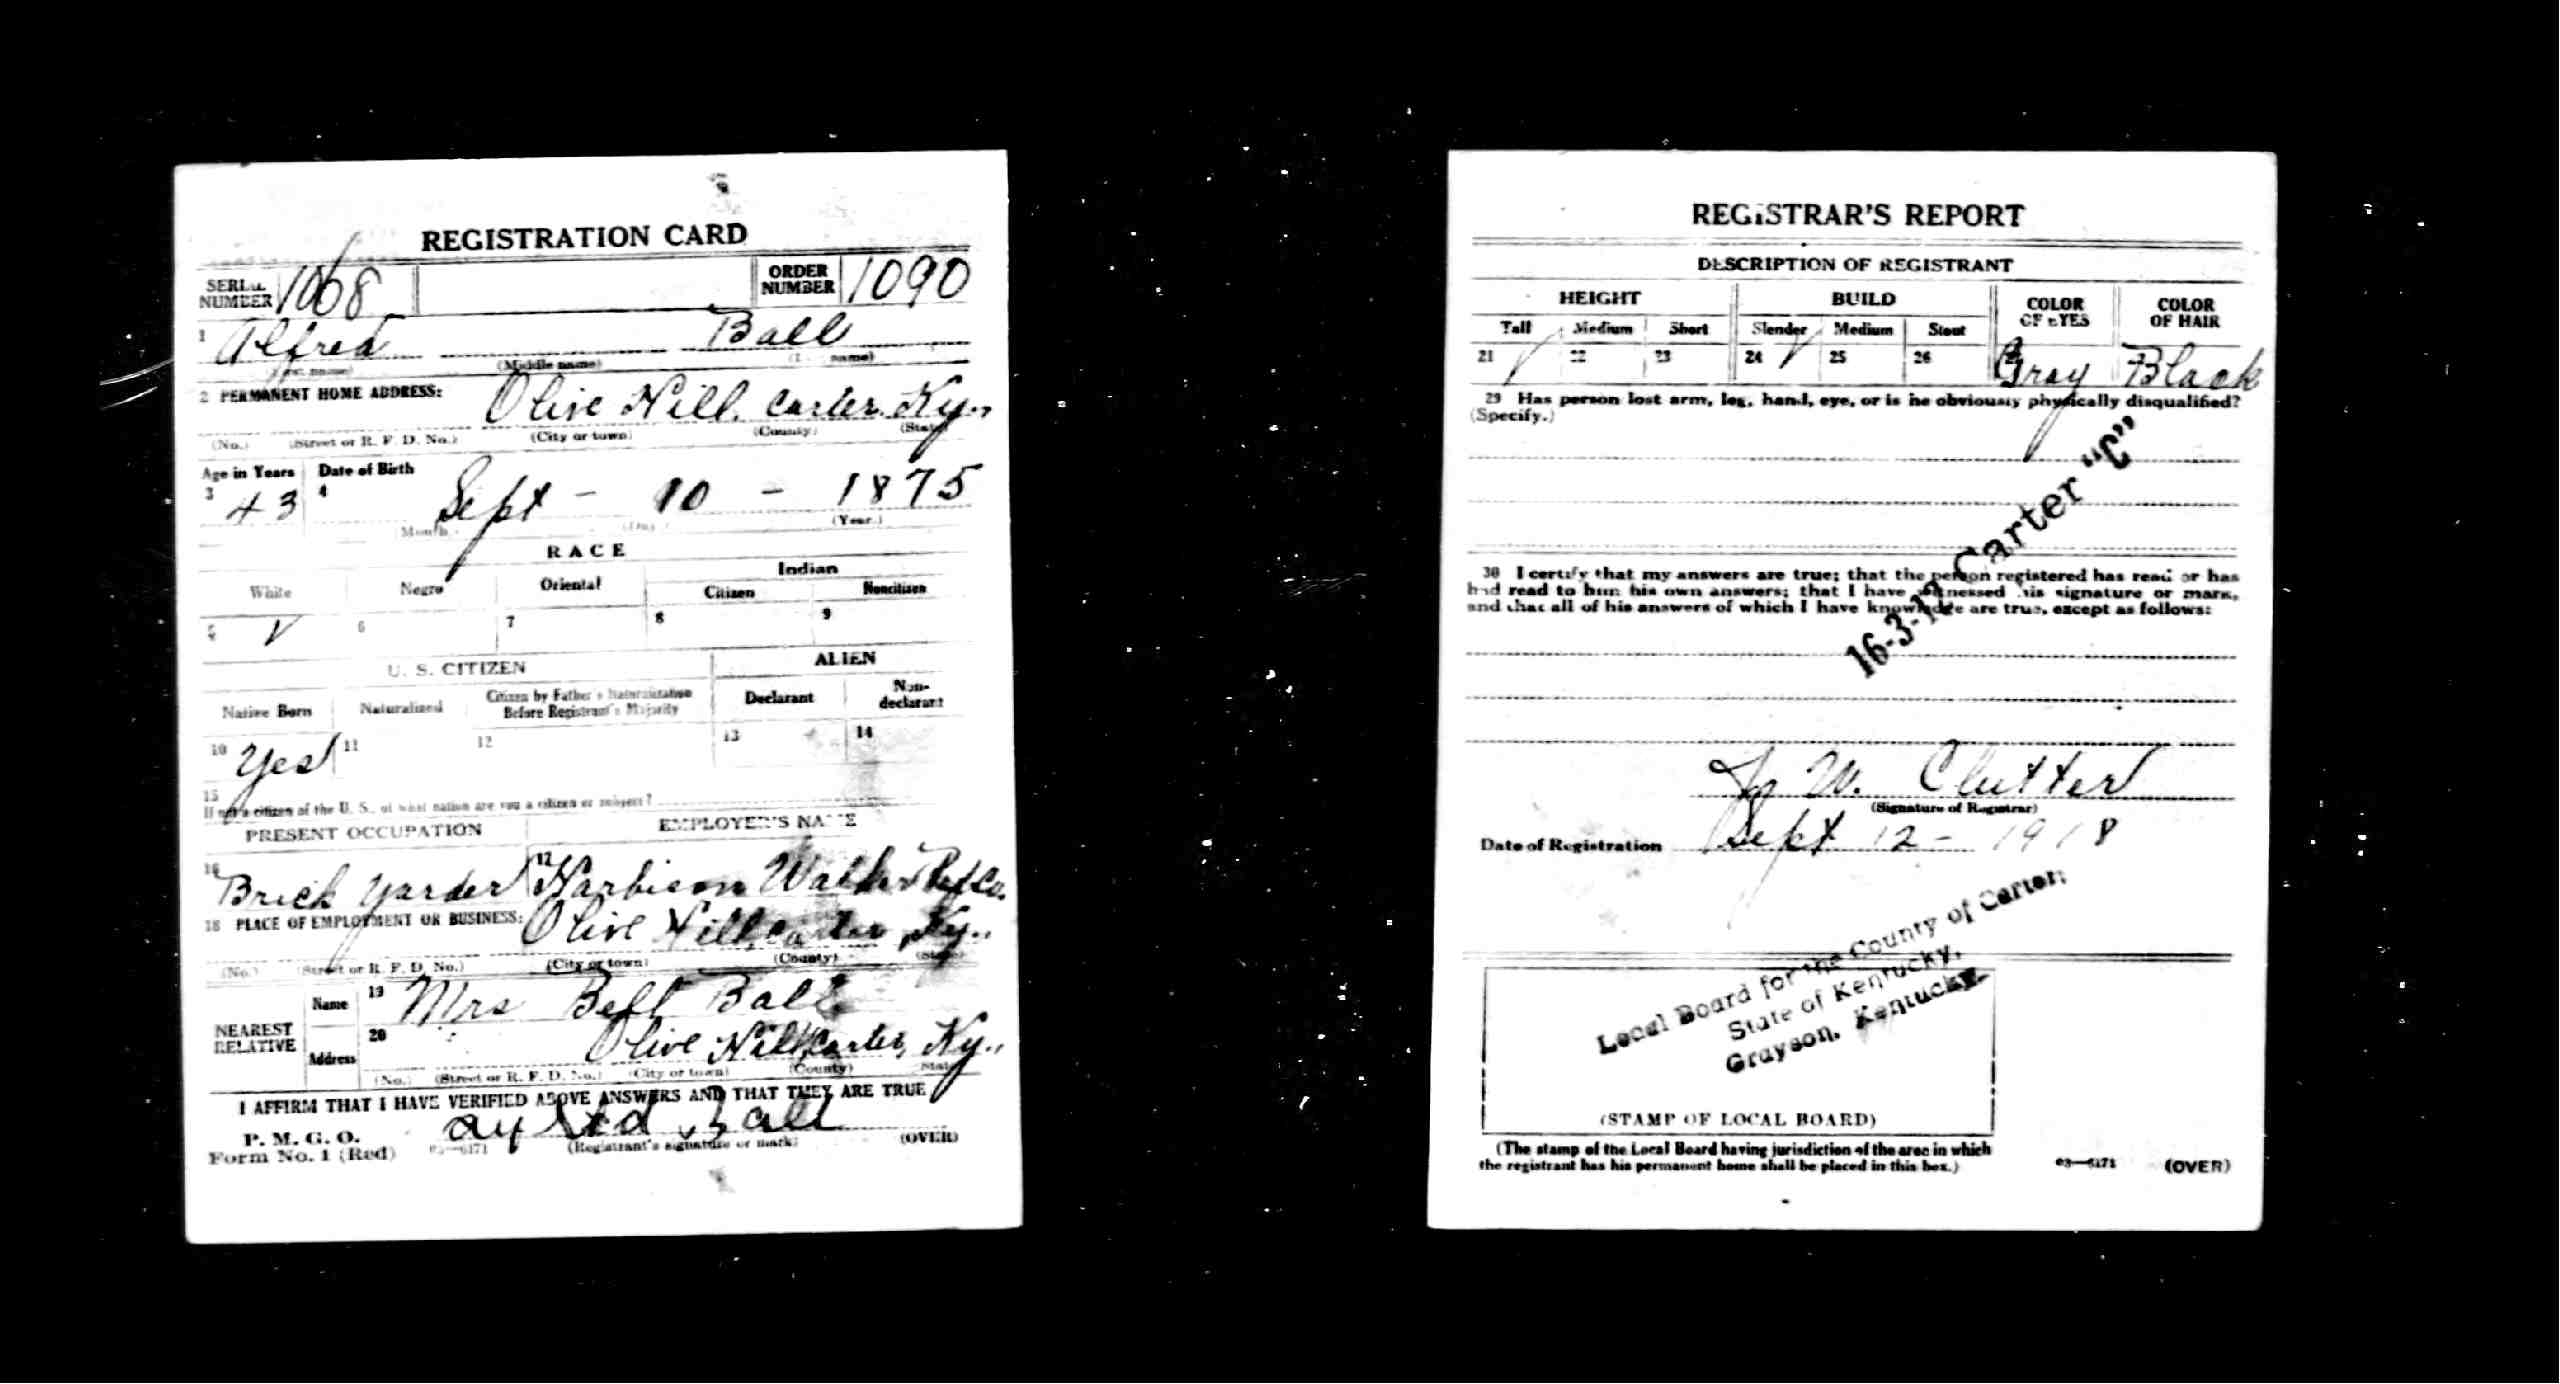 REGISTRATION CARD
SERIAL NUMBER 1068 ORDER NUMBER 1090
1 Alfred Ball
(First name) (Middle name) (Last name)
2 PERMANENT HOME ADDRESS: Olive Hill, Carter, Ky.,
(No.) (Street or R. F. D. No.) (City or town) (County) (State)
Age in Years Date of Birth
3 43 4 Sept - 10 - 1875
(Month.) (Day.) (Year.)
RACE
White Negro Oriental Indian
Citizen Noncitizen
5 ✓ 6 7 8 9
U. S. CITIZEN ALIEN
Native Born Naturalized Citizen by Father's Naturalization Before Registrant's Majority Declarant Non-declarant
10 Yes 11 12 13 14
15
If not a citizen of the U. S., of what nation are you a citizen or subject?
PRESENT OCCUPATION EMPLOYER'S NAME
16 Brick Yarder 17 Harbison Walker Ref Co.
18 PLACE OF EMPLOYMENT OR BUSINESS: Olive Hill, Carter, Ky.,
(No.) (Street or R. F. D. No.) (City or town) (County) (State)
NEAREST RELATIVE
Name 19 Mrs Bell Ball
Address 20 Olive Hill, Carter, Ky.,
(No.) (Street or R. F. D. No.) (City or town) (County) (State)
I AFFIRM THAT I HAVE VERIFIED ABOVE ANSWERS AND THAT THEY ARE TRUE
P. M. G. O.
Form No. 1 (Red) 03—6171 (Registrant's signature or mark) (OVER)
Ball
REGISTRAR'S REPORT
DESCRIPTION OF REGISTRANT
HEIGHT BUILD COLOR OF EYES COLOR OF HAIR
Tall Medium Short Slender Medium Stout
21 ✓ 22 23 24 ✓ 25 26 Gray Black
29 Has person lost arm, leg, hand, eye, or is he obviously physically disqualified?
(Specify.)
16-3-12 Carter "C"
30 I certify that my answers are true; that the person registered has read or has
had read to him his own answers; that I have witnessed his signature or mark,
and that all of his answers of which I have knowledge are true, except as follows:
W. Clutter
(Signature of Registrar)
Date of Registration Sept 12 - 1918
Local Board for the County of Carter,
State of Kentucky,
Grayson, Kentucky.
(STAMP OF LOCAL BOARD)
(The stamp of the Local Board having jurisdiction of the area in which
the registrant has his permanent home shall be placed in this box.)
03—6171 (OVER)